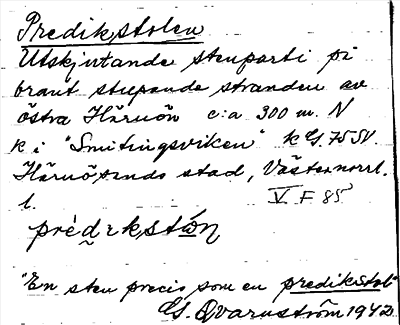 Predikstolen
Utskjutande stenparti på
brant stupande stranden av
östra Härnön c:a 300 m. N
k i "Smitingsviken" k G. 75 SV.
Härnösands stad, Västernorrl.
l. V F 85
prèdikstón
"En sten precis som en predikstol"
G. Qvarnström 1942